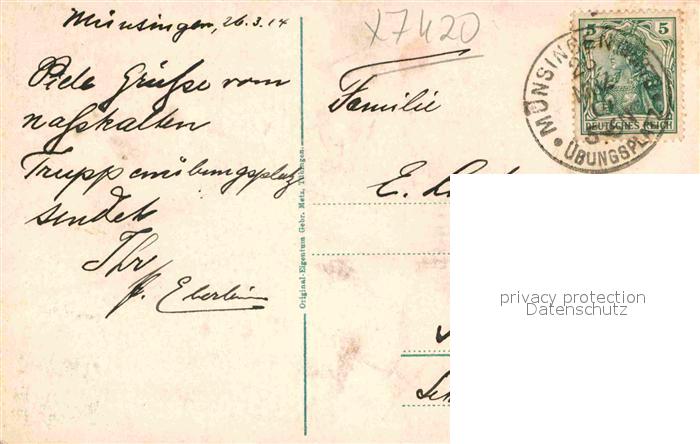 Münsingen, 26.3.14
Viele Grüße vom
naßkalten
Truppenübungsplatz
sendet
Ihr
Eberlein
X7420
Familie
E.
5 5
DEUTSCHES REICH
MÜNSINGEN
ÜBUNGSPLATZ
Original-Eigentum Gebr. Metz, Tübingen.
privacy protection
Datenschutz